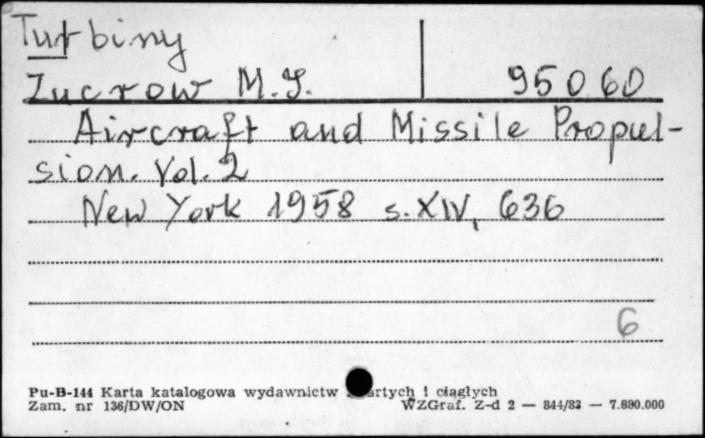 Turbiny
Zucrow M.J. 95060
Aircraft and Missile Propul-
sion. Vol. 2
New York 1958 s. XIV, 636
6
Pu-B-144 Karta katalogowa wydawnictw i ciągłych
Zam. nr 136/DW/ON WZGraf. Z-d 2 — 844/83 — 7.890.000